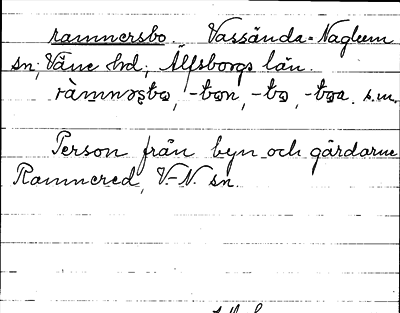 ramnersbo. Vassända-Naglum
sn; Väne hd; Älfsborgs län.
-bo s.m.
Person från byn och gårdarne
Ramnered, V.-N. sn.